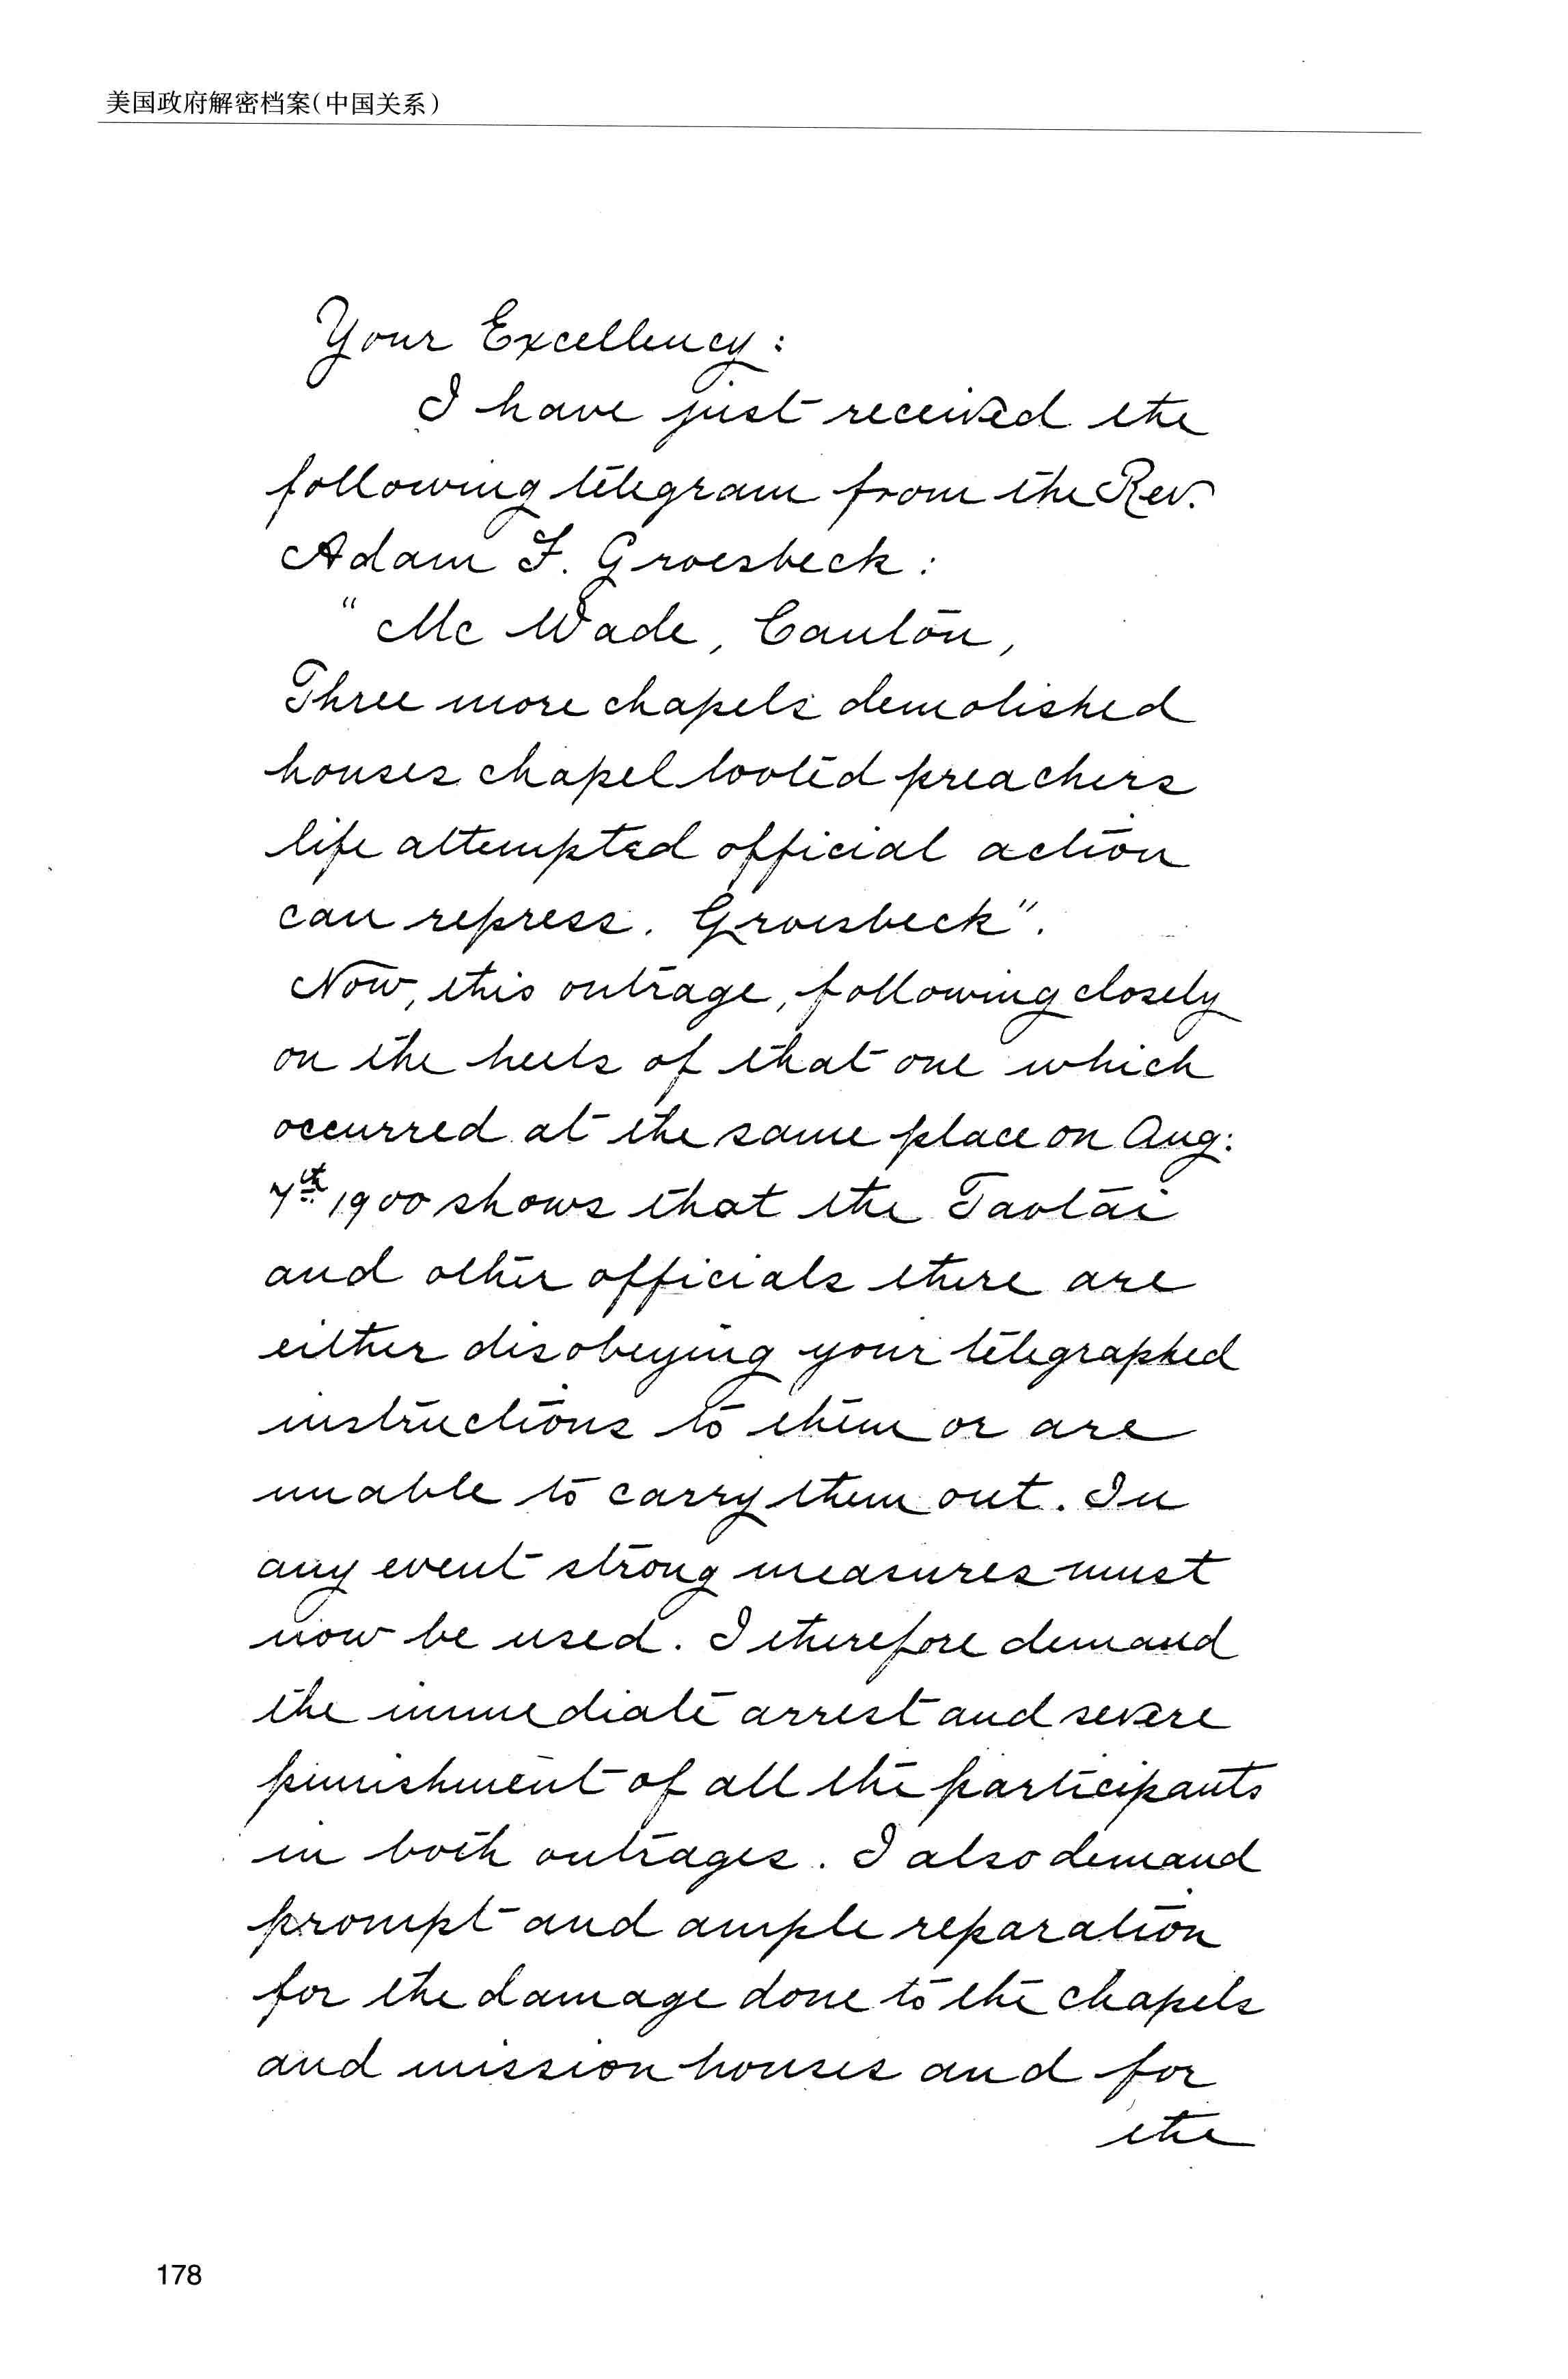 美国政府解密档案(中国关系)
Your Excellency:
I have just received the
following telegram from the Rev.
Adam F. Groesbeck:
"Mc Wade, Canton,
Three more chapels demolished
houses chapel looted preachers
life attempted official action
can repress. Groesbeck".
Now, this outrage, following closely
on the heels of that one which
occurred at the same place on Aug:
7th 1900 shows that the Taotai
and other officials there are
either disobeying your telegraphed
instructions to them or are
unable to carry them out. In
any event strong measures must
now be used. I therefore demand
the immediate arrest and severe
punishment of all the participants
in both outrages. I also demand
prompt and ample reparation
for the damage done to the chapels
and mission houses and for
the
178